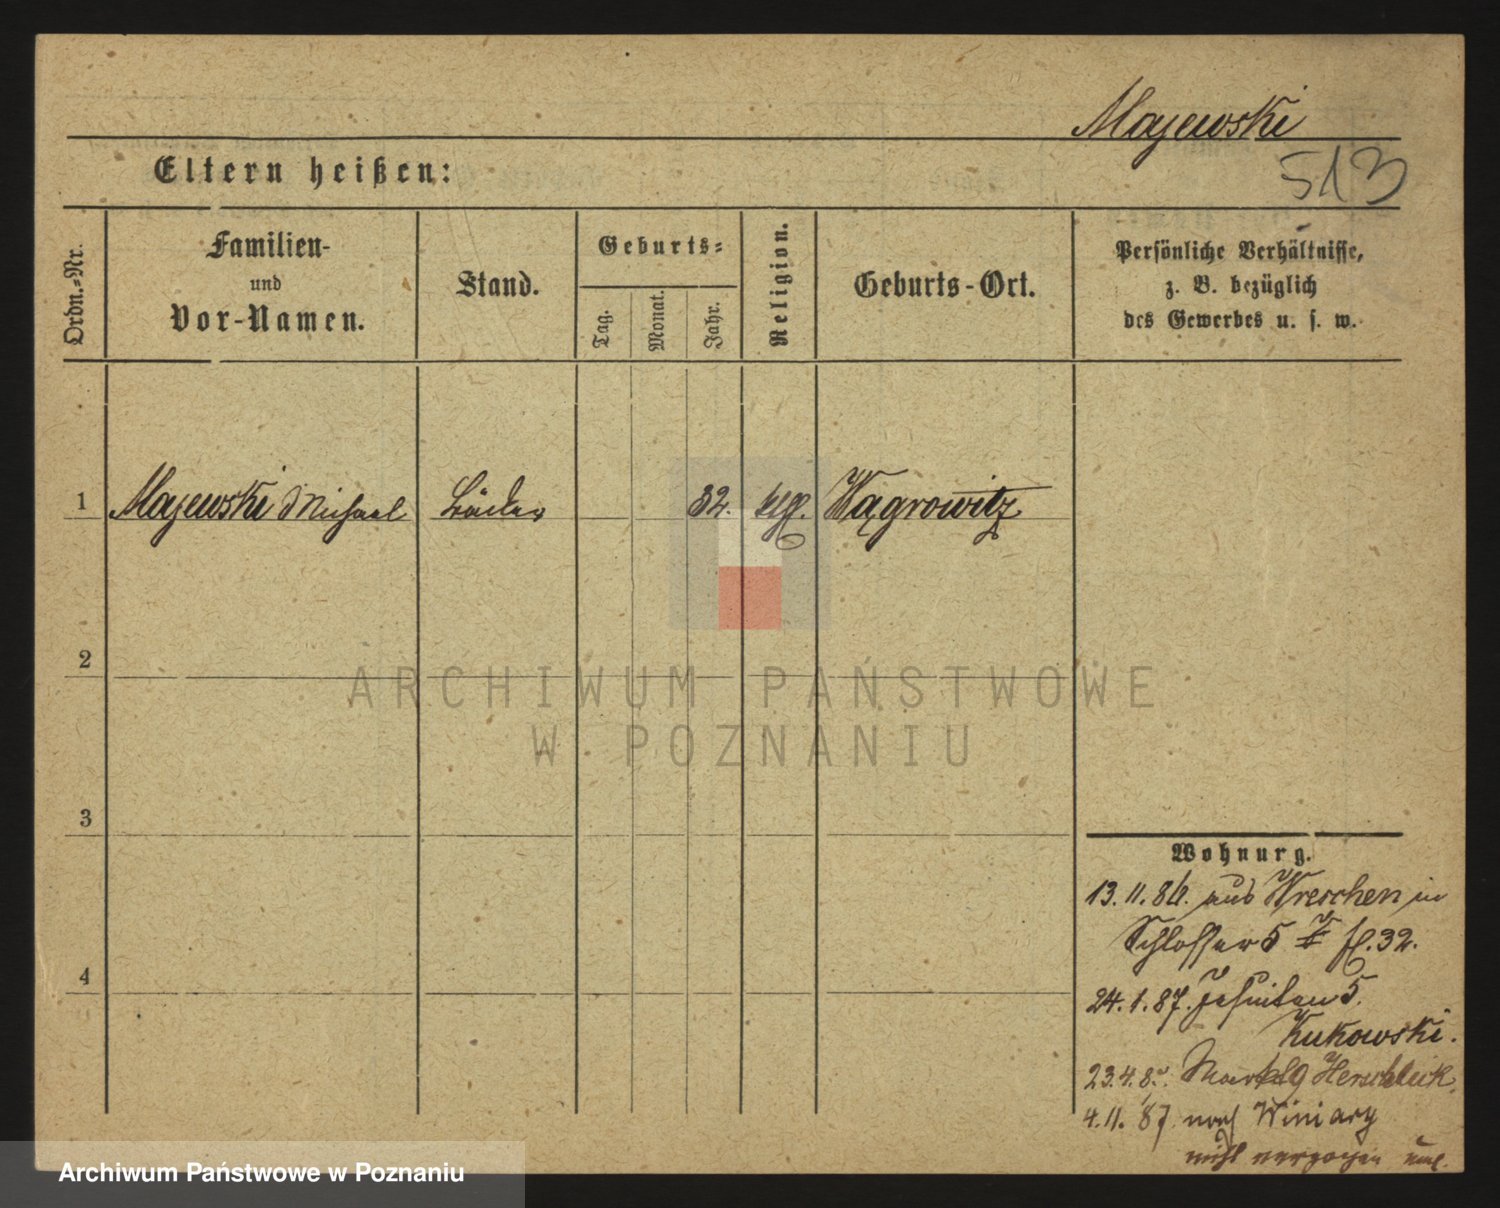 Majewski
513
Eltern heißen:
Ordn.-Nr.
Familien-
und
Vor-Namen.
Stand.
Geburts-
Tag.
Monat.
Jahr.
Religion.
Geburts-Ort.
Persönliche Verhältnisse,
z. B. bezüglich
des Gewerbes u. s. w.
1 Majewski Michael Bäcker 32. Wągrowitz
2
3
4
Wohnung.
13. 11. 86. aus Wreschen in
Schlosser 5 fl. 32.
24. 1. 87. Jesuiten 5.
Kukowski.
23. 4. Markt 9
4. 11. 87 nach Winiary
nicht verzogen
ARCHIWUM PAŃSTWOWE
W POZNANIU
Archiwum Państwowe w Poznaniu